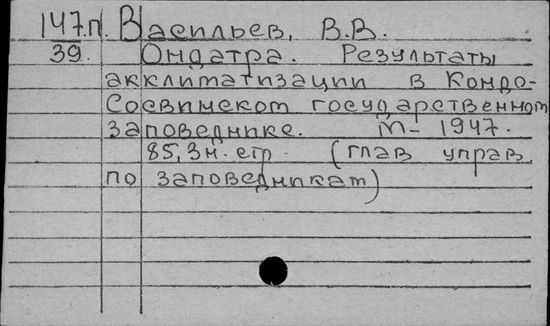 147.п. Васильев, В.В.
39. Ондатра. Результаты
акклиматизации в Кондо-
Сосвинском государственном
заповеднике. М- 1947.
85,3н. стр. (глав управ
по заповедникам)